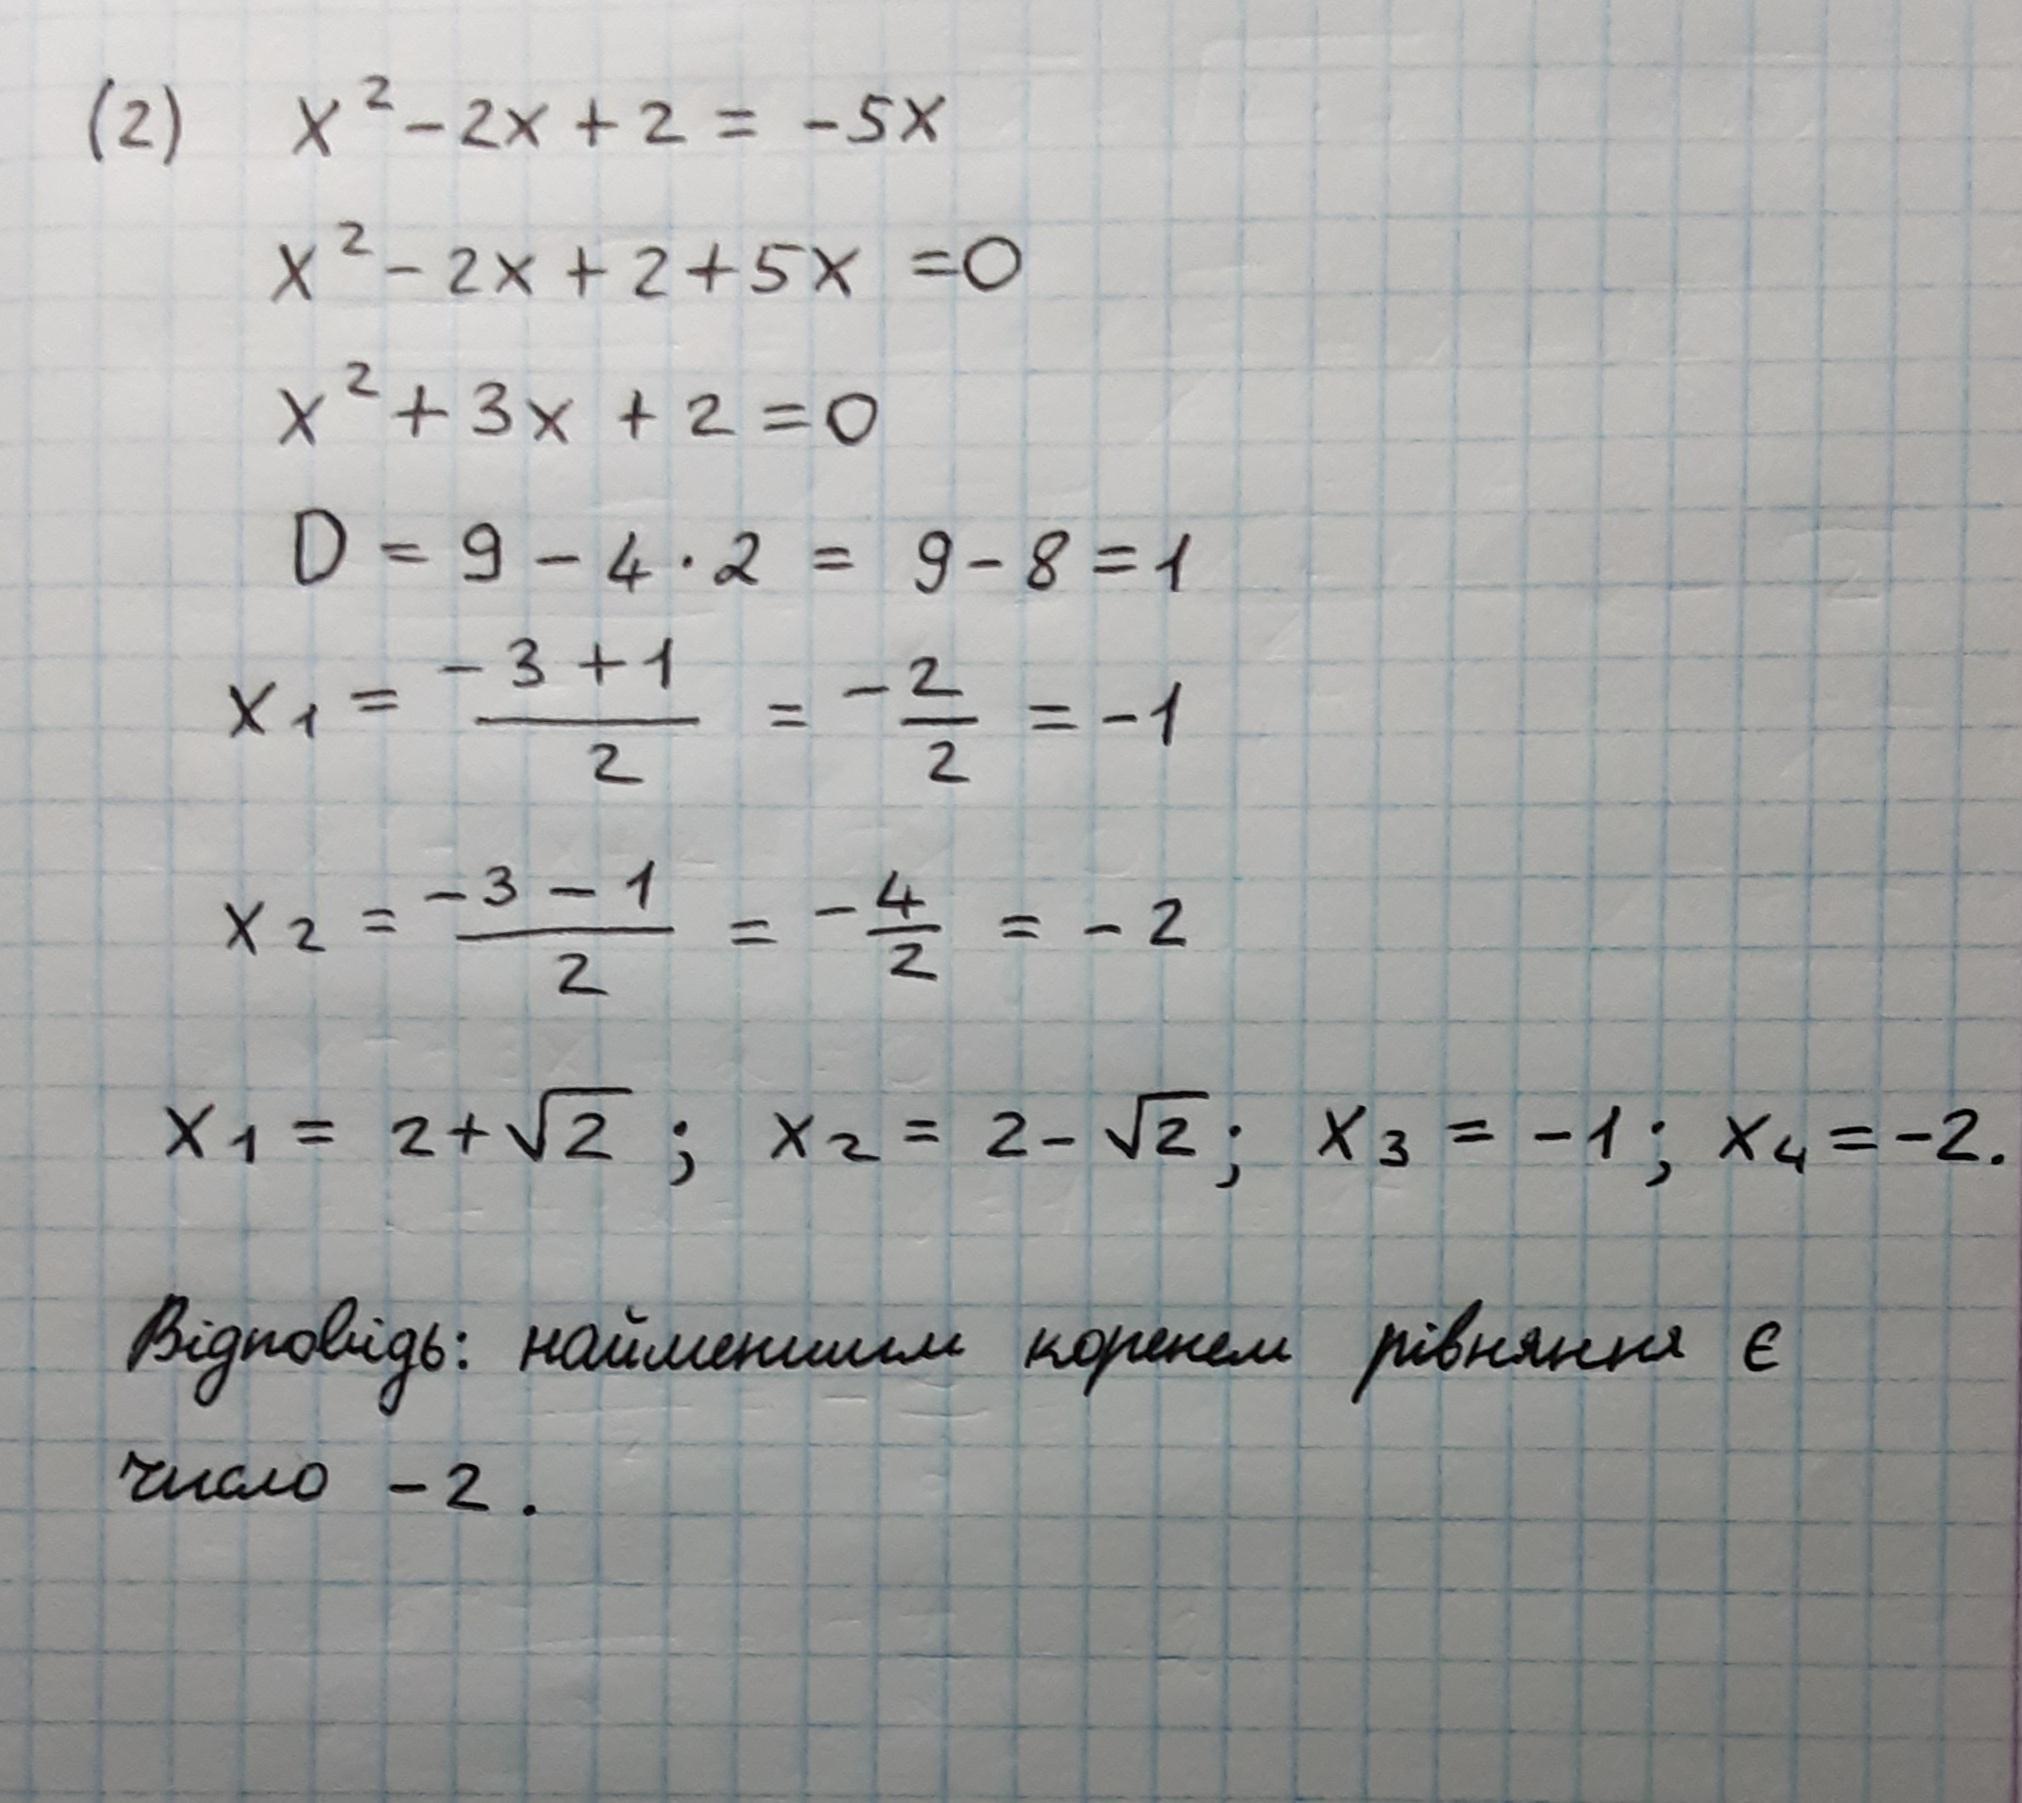 (2) x² - 2x + 2 = -5x
x² - 2x + 2 + 5x = 0
x² + 3x + 2 = 0
D = 9 - 4 · 2 = 9 - 8 = 1
x₁ = (-3 + 1)/2 = -2/2 = -1
x₂ = (-3 - 1)/2 = -4/2 = -2
x₁ = 2 + √2 ; x₂ = 2 - √2 ; x₃ = -1 ; x₄ = -2.
Відповідь: найменшим коренем рівняння є
число -2.